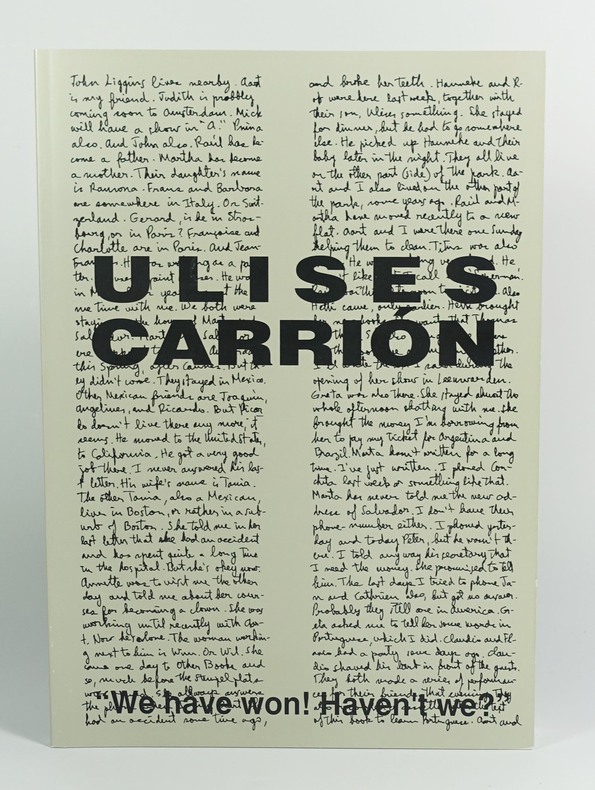 John Liggins lives nearby. Aart
is my friend. Judith is probbly
coming soon to Amsterdam. Mick
will have a show in "A." Prina
also. And John also. Raúl has be-
come a father. Martha has become
a mother. Their daughter's name
is Ramona. Frans and Barbara
are somewhere in Italy. Or Swit-
zerland. Gerard, is he in Stras-
bourg, or in Paris? Françoise and
Charlotte are in Paris. And Jean-
ULISES
CARRIÓN
this Spring, after Cannes. But th-
ey didn't come. They stayed in Mexico.
Other Mexican friends are Joaquin,
Angelines, and Ricardo. But Ricar-
do doesn't live there any more, it
seems. He moved to the United States,
to California. He got a very good
job there. I never answered his las-
t letter. His wife's name is Tania.
The other Tania, also a Mexican,
lives in Boston, or rather in a sub-
urb of Boston. She told me in her
last letter that she had an accident
and has spent quite a long time
in the hospital. But she's okey now.
Annette was to visit me the other
day and told me about her cour-
ses for becoming a clown. She was
working until recently with Aar-
t. Now he's alone. The woman workin-
g next to him is Wim. Or Wil. She
came one day to Other Books and
so, much before the stempel plate
had an accident some time ago,
and broke her teeth. Hanneke and R-
ob were here last week, together with
their son, Ulises something. She stayed
for dinner, but he had to go somewhere
else. He picked up Hanneke and their
baby later in the night. They all live
on the other part (side) of the park. Aa-
rt and I also lived on the other part of
the park, some years ago. Raúl and M-
artha have moved recently to a new
flat. Aart and I were there one Sunday
helping them to clean. Titus was also
opening of her show in Leeuwarden.
Greta was also there. She stayed almost the
whole afternoon chatting with me. She
brought the money I'm borrowing from
her to pay my ticket for Argentina and
Brazil. Marta hasn't written for a long
time. I've just written. I phoned Con-
chita last week or something like that.
Marta has never told me the new ad-
dress of Salvador. I don't have their
phone-number either. I phoned yester-
day and today Peter, but he wasn't th-
ere. I told anyway his secretary that
I need the money. She promised to tell
him. The last days I tried to phone Ja-
n and Cathrien also, but got no answer.
Probably they still are in America. G-
reta asked me to tell her some words in
Portuguese, which I did. Claudio and Fl-
had a party some days ago. Clau-
dio shaved his in front of the guests.
They both made a series of performan-
ces for their friends that evening. They
of this book to learn Portuguese. Aart and
"We have won! Haven't we?"